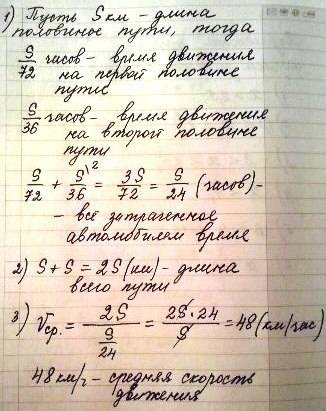 1) Пусть S км - длина
половиное пути, тогда
S/72 часов - время движения
на первой половине
пути
S/36 часов - время движения
на второй половине
пути
S/72 + S/36 \2 = 3S/72 = S/24 (часов) -
- всё затраченное
автомобилем время
2) S + S = 2S (км) - длина
всего пути
3) Vср. = 2S / (S/24) = 2S · 24 / S = 48 (км/час)
48 км/ч - средняя скорость
движения